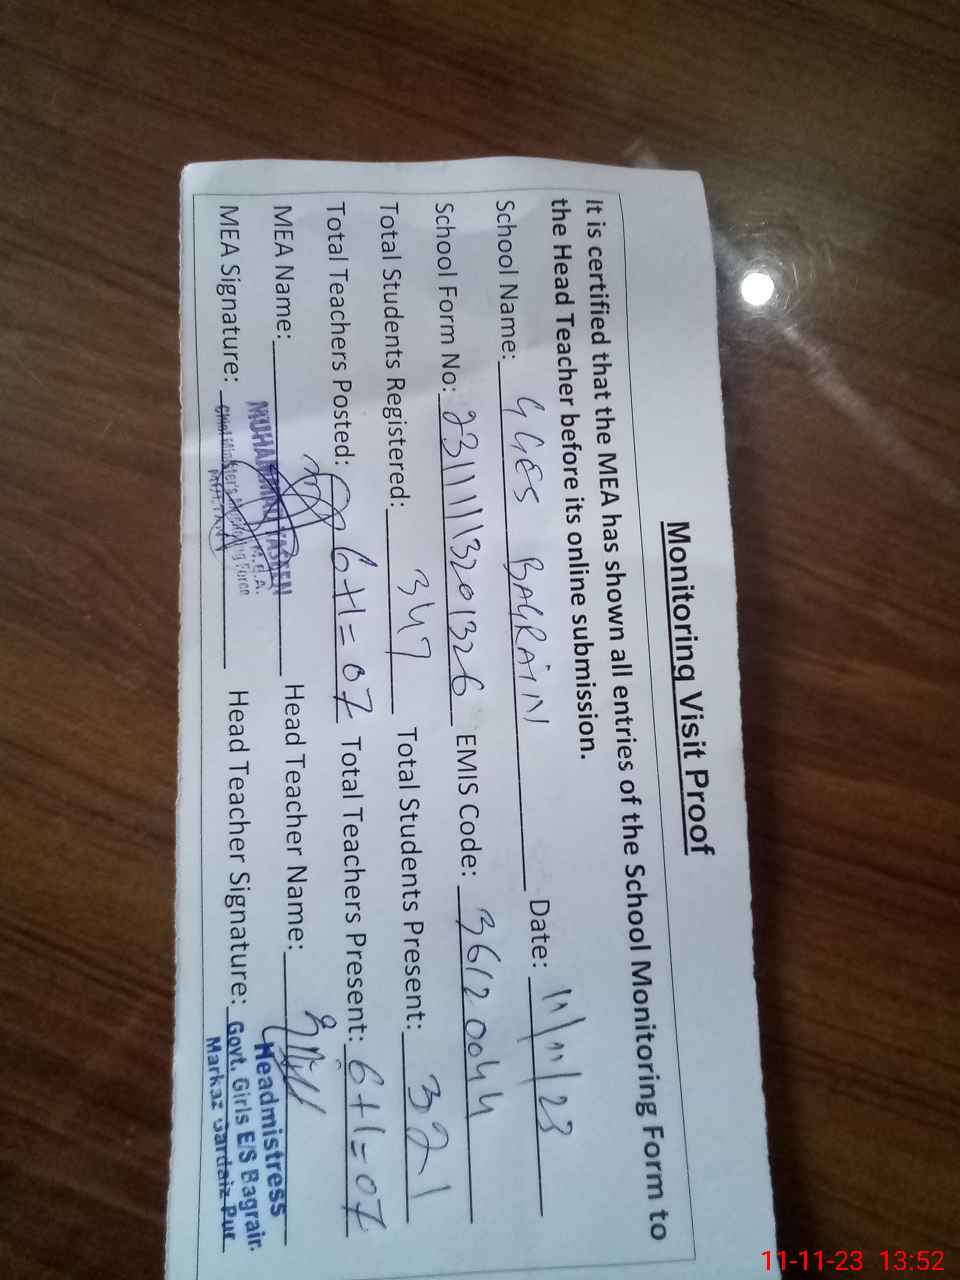 Monitoring Visit Proof
It is certified that the MEA has shown all entries of the School Monitoring Form to
the Head Teacher before its online submission.
School Name: GGES BAGRAIN Date: 11/11/23
School Form No: 23111113201326 EMIS Code: 36120044
Total Students Registered: 347 Total Students Present: 321
Total Teachers Posted: 6+1=07 Total Teachers Present: 6+1=07
MEA Name: MUHAMMAD YASEEN Head Teacher Name:
M.E.A. Headmistress
MEA Signature: Chief Minister's Monitoring Force Head Teacher Signature: Govt. Girls E/S Bagrain
Markaz Sardaiz Pur
11-11-23 13:52